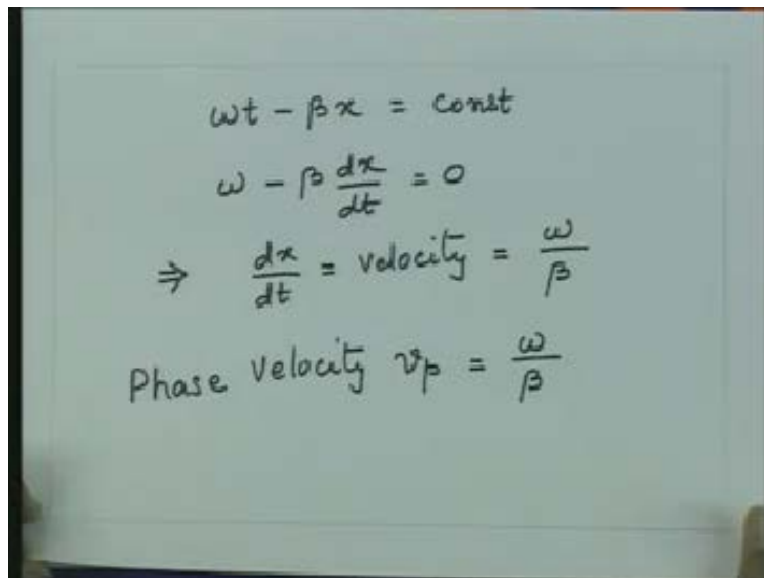 ωt - βx = const
ω - β dx/dt = 0
⇒ dx/dt = velocity = ω/β
Phase Velocity vp = ω/β